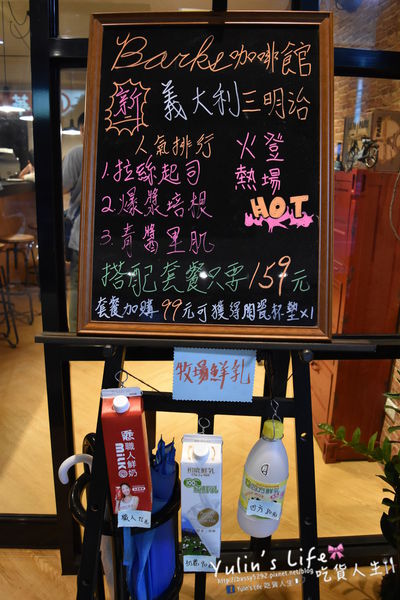 Barks 咖啡館
新 義大利三明治
人氣排行
火登
熱場
HOT
1.拉絲起司
2.爆漿培根
3.青醬里肌
搭配套餐只要159元
套餐加購99元可獲得陶瓷杯墊×1
牧場鮮乳
職人鮮奶
milk
初鹿鮮乳
100%
Yulin's Life
http://bassy5292.pixnet.net/blog
吃貨人生!!
Yulin's Life 吃貨人生